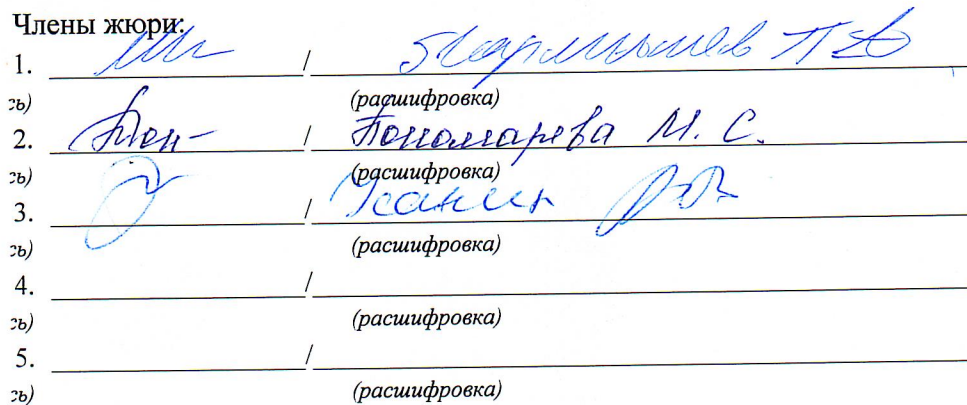 Члены жюри:
1. /
сь) (расшифровка)
2. / Пономарева М. С.
сь) (расшифровка)
3. /
сь) (расшифровка)
4. /
сь) (расшифровка)
5. /
сь) (расшифровка)